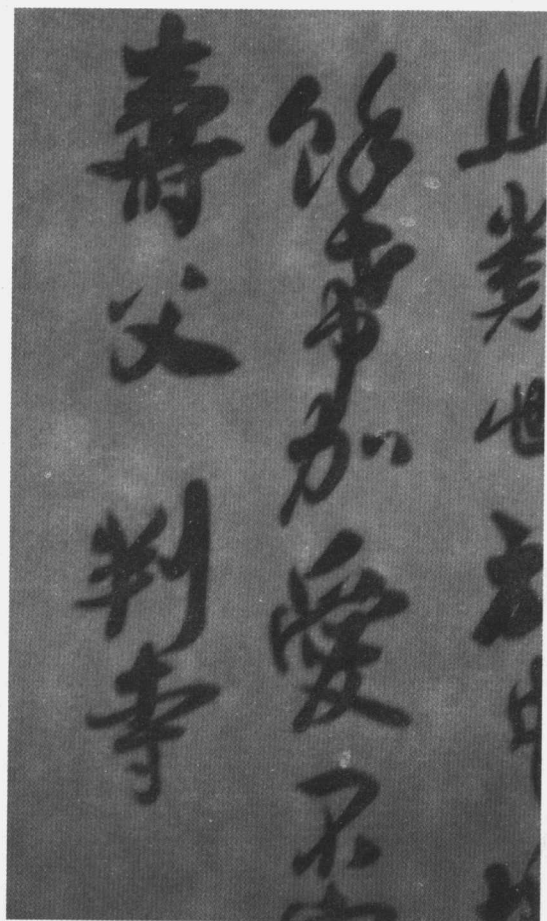 此類也
餘事加愛不
壽父 判寺